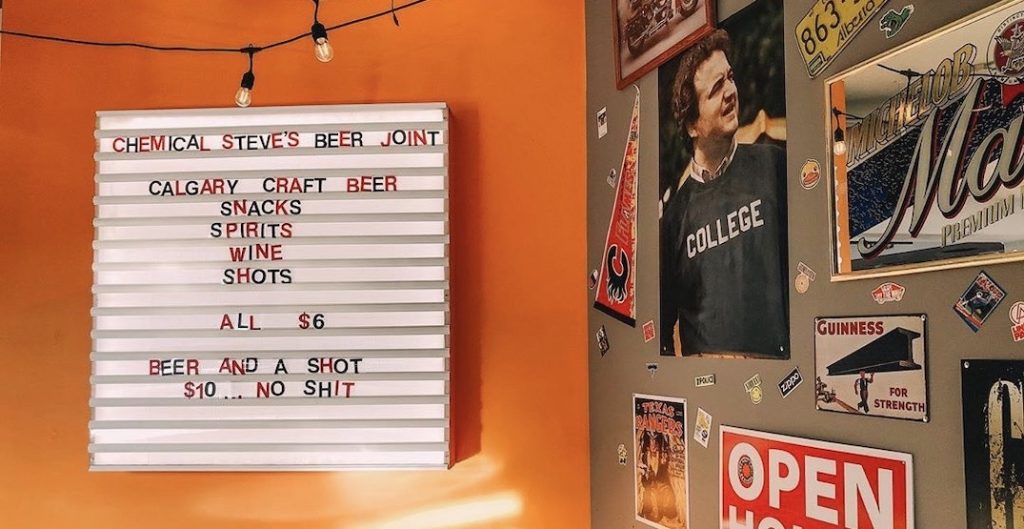 CHEMICAL STEVE'S BEER JOINT
CALGARY CRAFT BEER
SNACKS
SPIRITS
WINE
SHOTS
ALL $6
BEER AND A SHOT
$10... NO SHIT
863
Alberta
MICHELOB
PREMIUM
FLAMES
COLLEGE
GUINNESS
FOR
STRENGTH
ZIPPO
TEXAS
RANGERS
OPEN